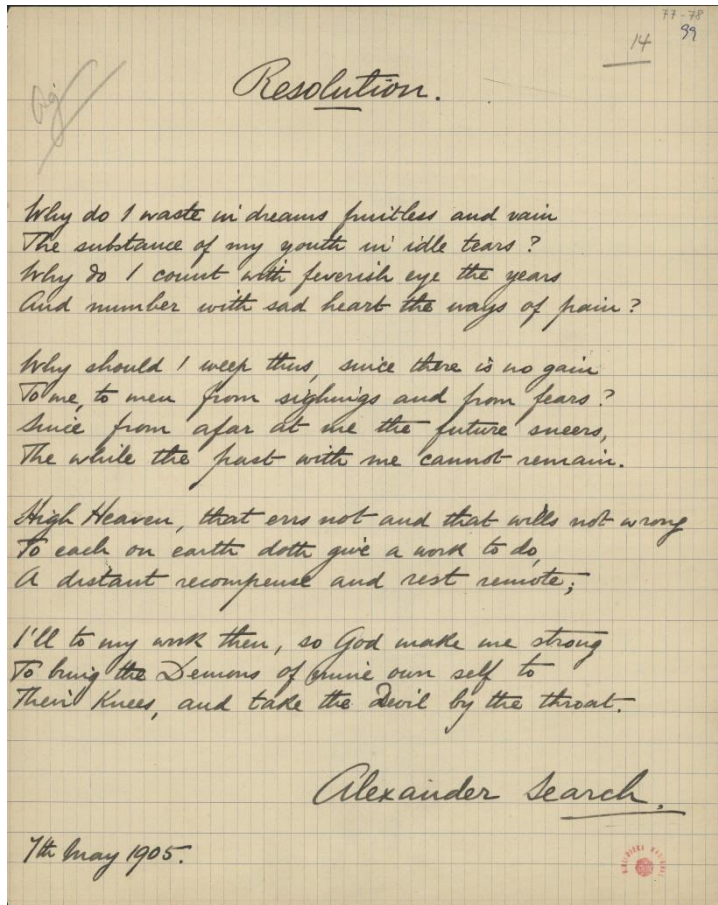 77-78
99
14
Resolution.
Why do I waste in dreams fruitless and vain
The substance of my youth in idle tears?
Why do I count with feverish eye the years
And number with sad heart the ways of pain?
Why should I weep thus, since there is no gain
To me, to men from sighings and from fears?
Since from afar at me the future sneers,
The while the past with me cannot remain.
High Heaven, that errs not and that wills not wrong
To each on earth doth give a work to do,
A distant recompense and rest remote;
I'll to my work then, so God make me strong
To bring the Demons of mine own self to
Their Knees, and take the Devil by the throat.
Alexander Search.
7th May 1905.